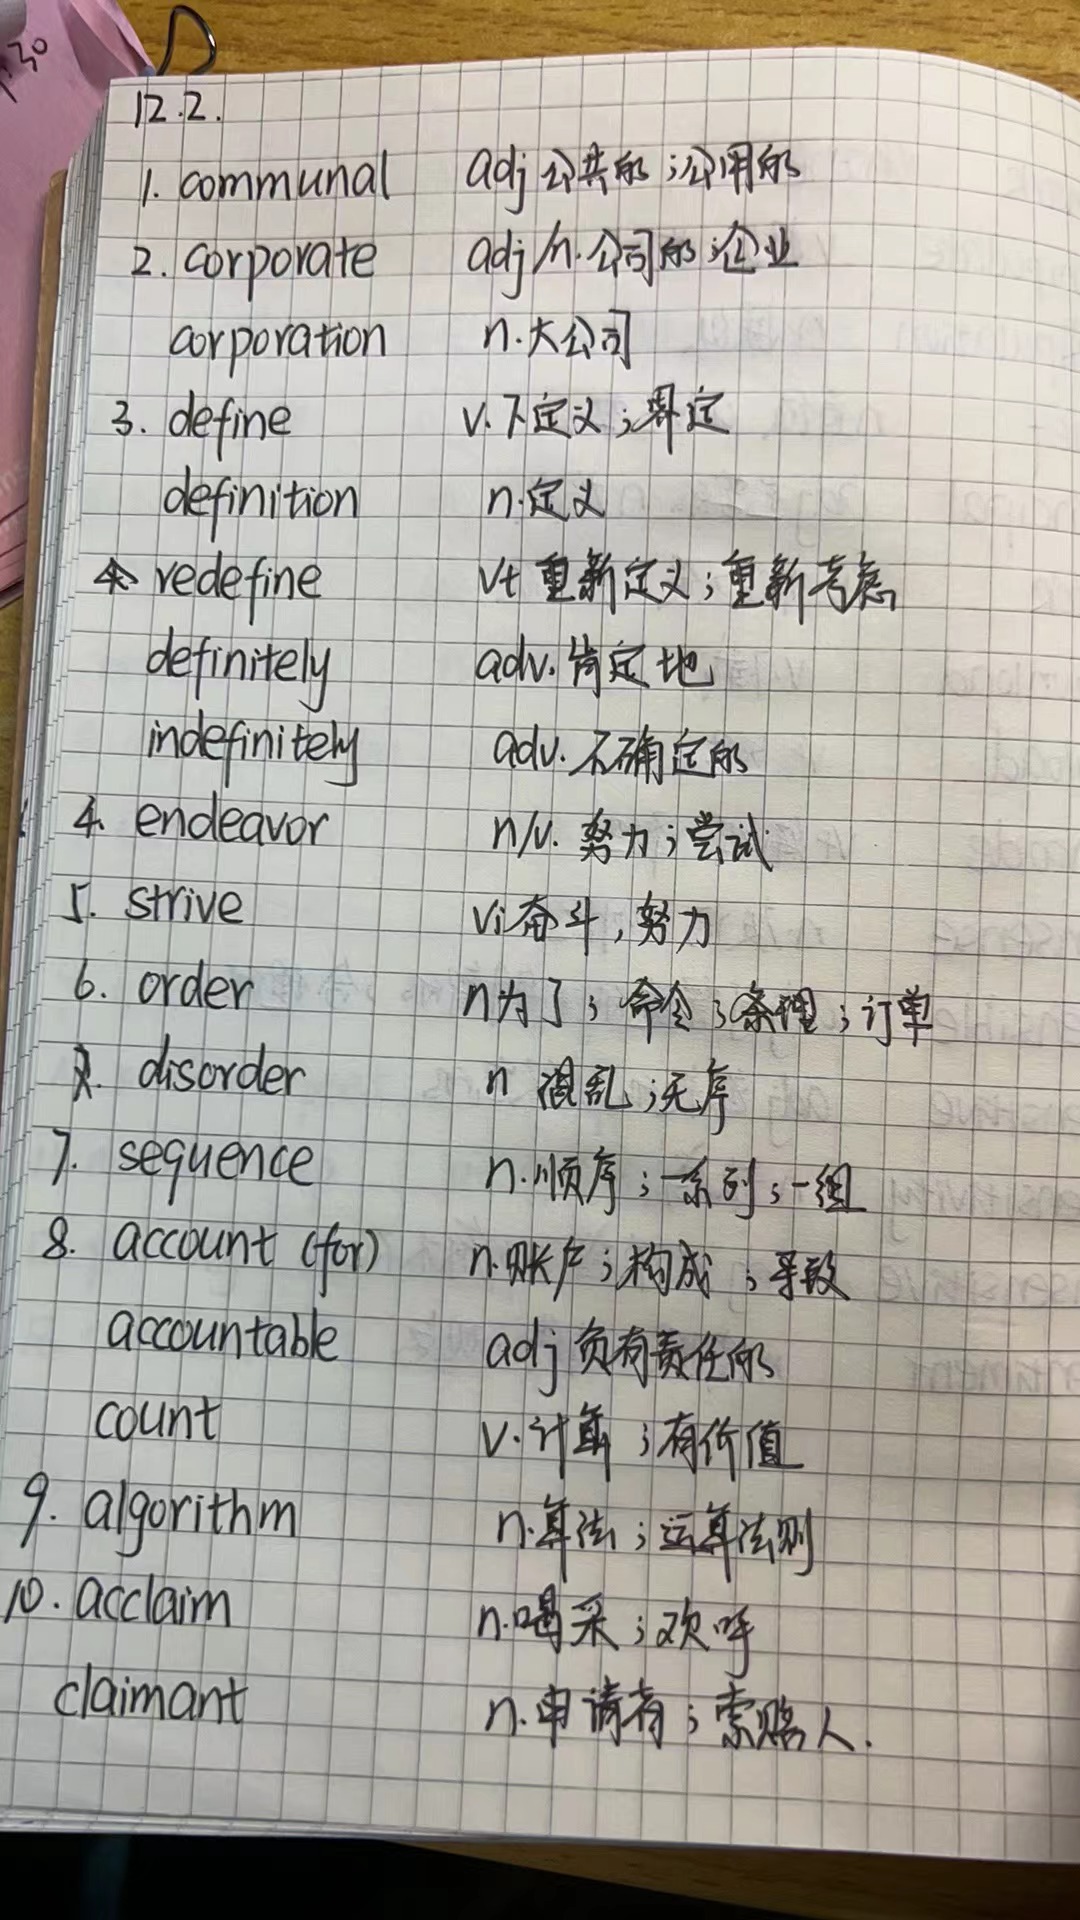 :30
12.2.
1. communal adj 公共的；公用的
2. corporate adj/n. 公司的；企业
corporation n. 大公司
3. define v. 下定义；界定
definition n. 定义
redefine vt 重新定义；重新考虑
definitely adv. 肯定地
indefinitely adv. 不确定的
4. endeavor n/v. 努力；尝试
5. strive vi 奋斗，努力
6. order n 为了；命令；条理；订单
disorder n 混乱；无序
7. sequence n. 顺序；一系列；一组
8. account (for) n. 账户；构成；导致
accountable adj 负有责任的
count v. 计算；有价值
9. algorithm n. 算法；运算法则
10. acclaim n. 喝采；欢呼
claimant n. 申请者；索赔人.